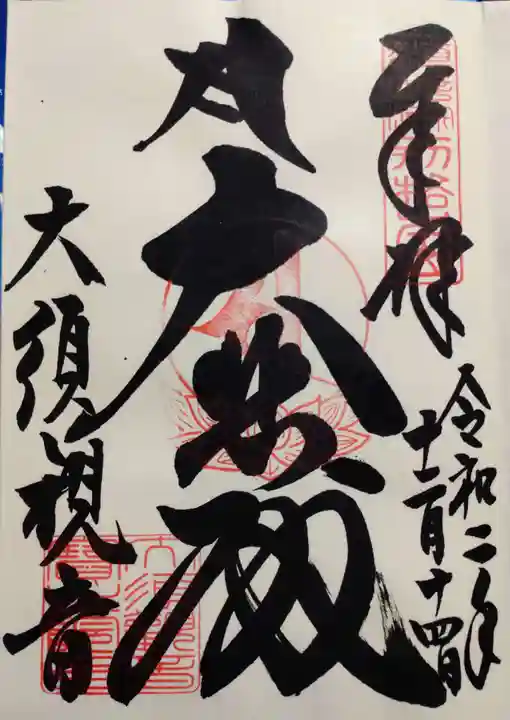 奉拝
令和二年
十二月十四日
大悲殿
大須観音